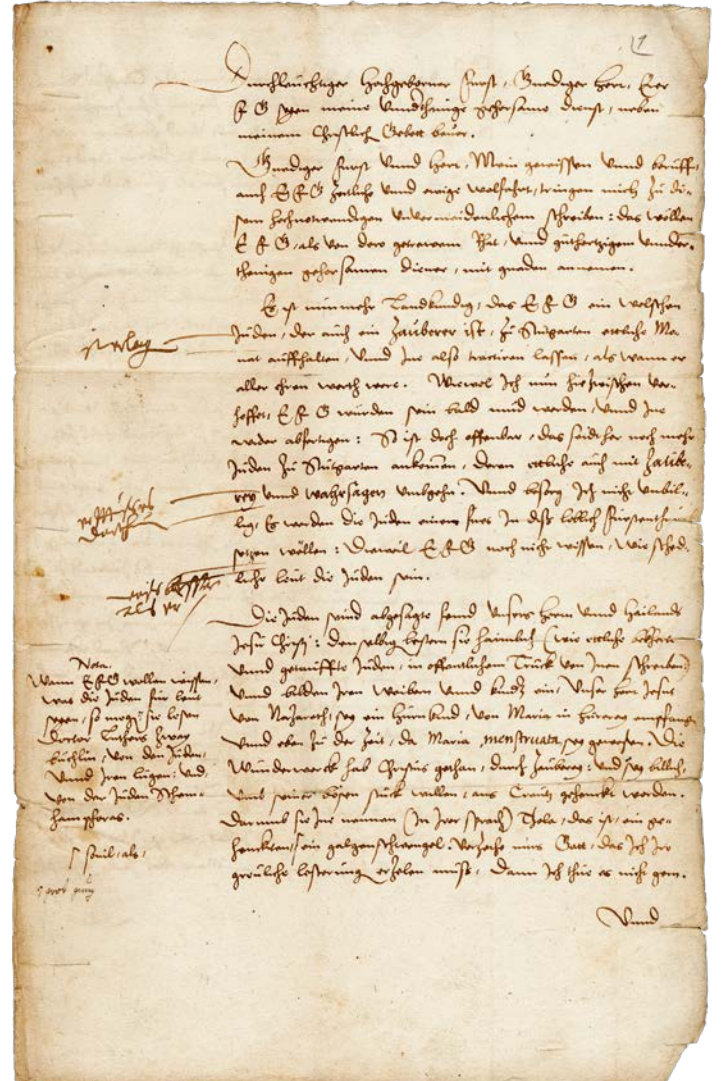 1
Durchleuchtiger Hochgeborner Fürst, Gnediger Herr, Ewer
F G seyen meine Underthenige gehorsame dienst, neben
meinem Christlich Gebett bevor.
Gnediger Fürst Unnd Herr, Mein gewissen Unnd beruff,
auch E F G zeitliche Unnd ewige wolfahrt, tringen mich zu di-
sem hochnotwendigen Unvermeidenlichem schreiben: das wöllen
E F G, als von dero getrewem Rhat, Unnd guthertzigem Under-
thenigen gehorsamen diener, mit gnaden annemen.
Es ist nunmehr Landkündig, das E F G ein welschen
Juden, der auch ein Zauberer ist, zu Stutgarten ettliche Mo-
nat auffhalten, Unnd Jne also tractiren lassen, als wann er
aller ehren werth were. Wiewol Jch nun hiezwischen ver-
hoffet, E F G würden sein bald müd werden, Unnd Jne
wider abfertigen: So ist doch offenbar, das seidther noch mehr
Juden zu Stutgarten ankomen, deren ettliche auch mit Zaube-
rey Unnd wahrsagen umbgehn. Unnd besorg Jch nicht unbil-
lig, Es werden die Juden einen fues Jn diß loblich Fürstenthumb
setzen wöllen: Dieweil E F G noch nicht wissen, wie sched-
liche leut die Juden sein.
Die Juden seind abgesagte feind Unsers Herrn Unnd Hailands
Jesu Christi: Den selbig lestern sie haimlich (wie ettliche bekherte
Unnd getauffte Juden, in offentlichem Truck von Jnen schreiben)
Unnd bilden Jren Weibern Unnd kinder ein, Unser Herr Jesus
von Nazareth, sey ein hurnkind, von Maria in hurerey empfangen
Unnd eben zu der zeit, da Maria, menstruata, sey gewesen. Die
Wunderwerck hab Christus gethan, durch Zauberey: und sey billich,
umb seiner bösen stück willen, ans Creutz gehenckt worden.
Darumb sie Jne nennen (Jn Jrer sprach) Thola, das ist, ein ge-
henckten, ein galgenschwengel. Verzeihe mirs Gott, das Jch Jre
greuliche lesterung erzelen muß, dann Jch thue es nicht gern.
Unnd
erlog
als er
Nota.
Wann E F G wöllen wissen,
was die Juden für leut
seyen, so mogen sie lesen
Doctor Luthers zway
büchlin, von den Juden,
Unnd Jren Lügen: und,
von der Juden Schem-
hamphoras.
souil, als,